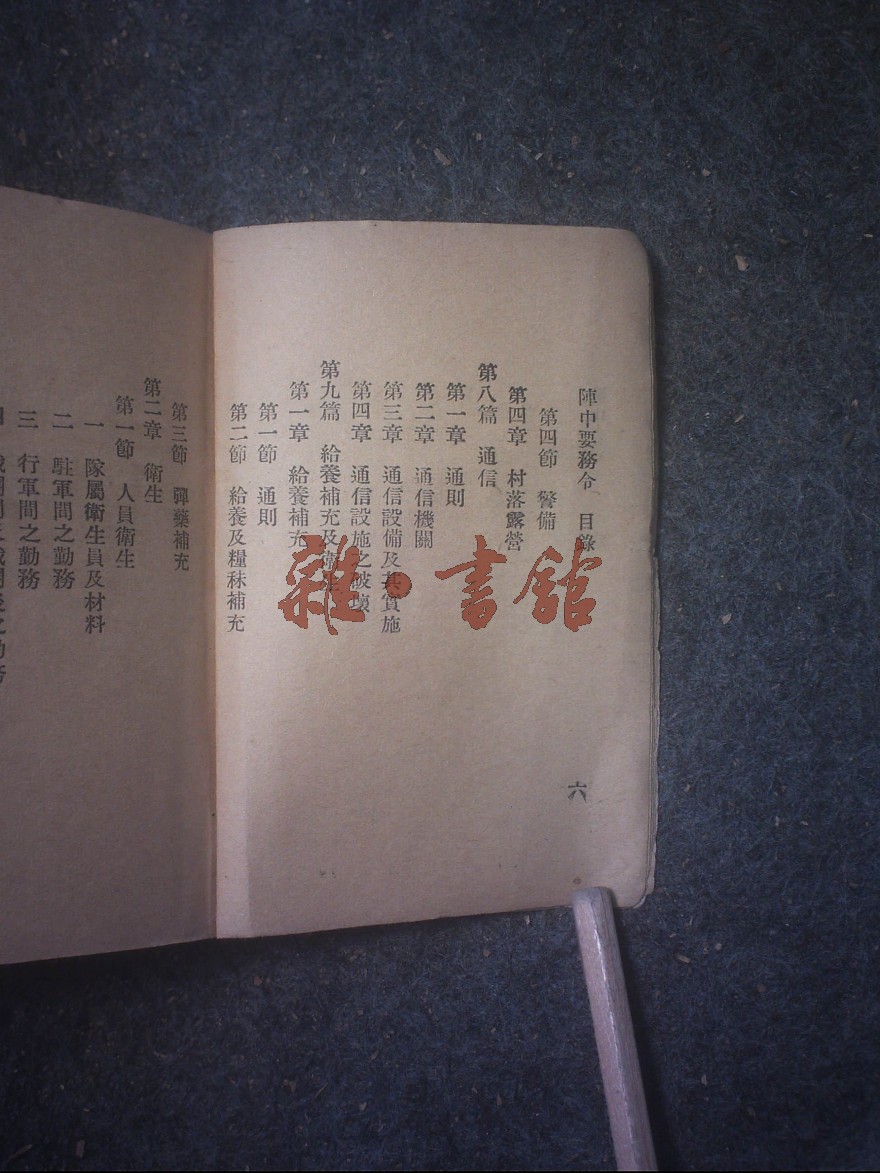 陣中要務令 目錄
第四節 警備
第四章 村落露營
第八篇 通信
第一章 通則
第二章 通信機關
第三章 通信設備及其實施
第四章 通信設施之破壞
第九篇 給養補充及衛生
第一章 給養補充
第一節 通則
第二節 給養及糧秣補充
六
第三節 彈藥補充
第二章 衛生
第一節 人員衛生
一 隊屬衛生員及材料
二 駐軍間之勤務
三 行軍間之勤務
雜·書館